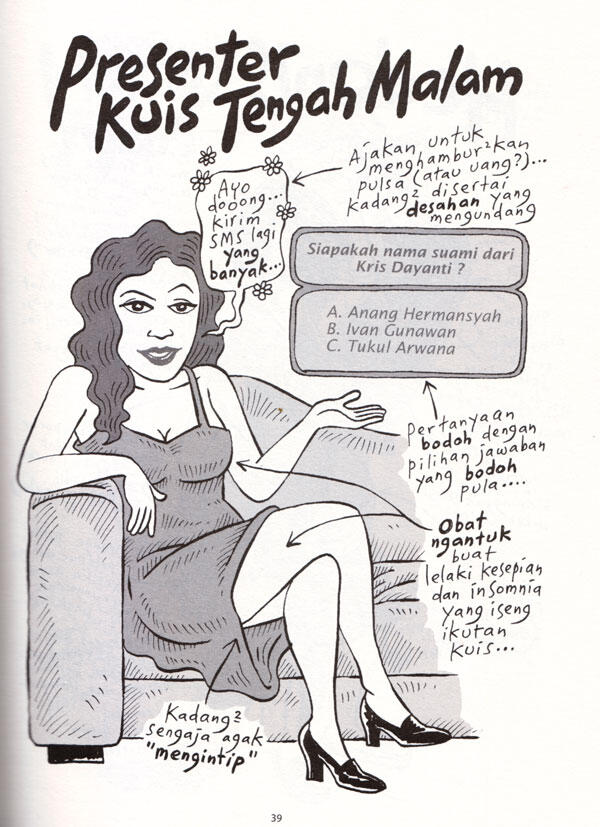 Presenter
Kuis Tengah Malam
Ajakan untuk
menghambur²kan
pulsa (atau uang?)...
kadang² disertai
desahan yang
mengundang
Ayo
dooong...
kirim
SMS lagi
yang
banyak...
Siapakah nama suami dari
Kris Dayanti ?
A. Anang Hermansyah
B. Ivan Gunawan
C. Tukul Arwana
Pertanyaan
bodoh dengan
pilihan jawaban
yang bodoh
pula....
Obat
ngantuk
buat
lelaki kesepian
dan insomnia
yang iseng
ikutan
kuis...
Kadang²
sengaja agak
"mengintip"
39